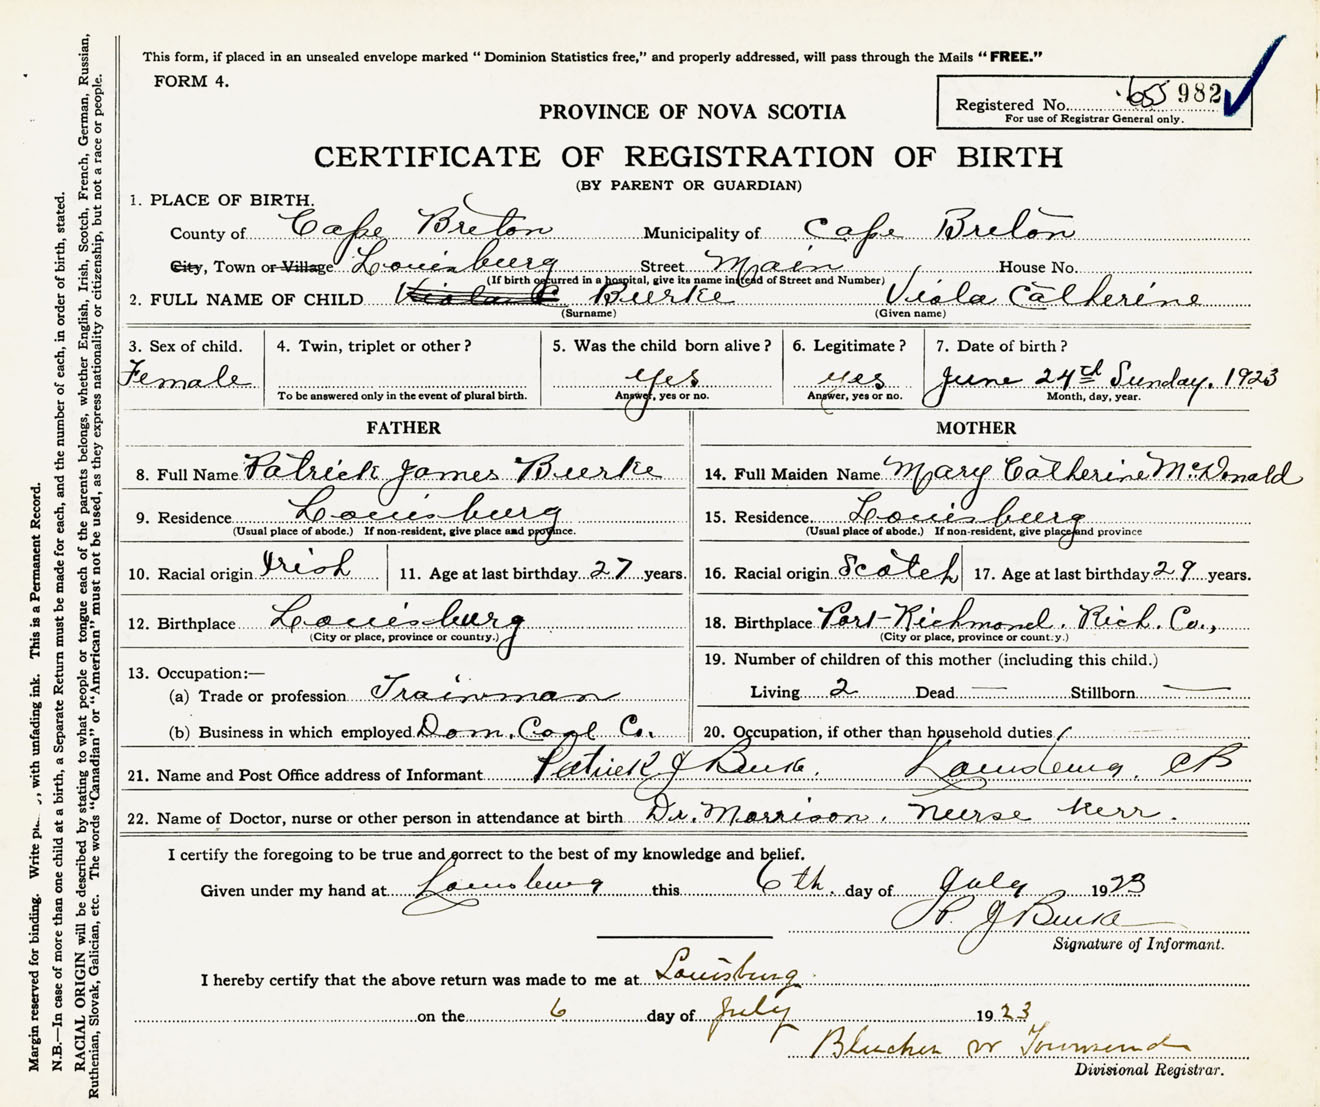 This form, if placed in an unsealed envelope marked "Dominion Statistics free," and properly addressed, will pass through the Mails "FREE."
FORM 4.
Registered No. 655 982
For use of Registrar General only.
PROVINCE OF NOVA SCOTIA
CERTIFICATE OF REGISTRATION OF BIRTH
(BY PARENT OR GUARDIAN)
1. PLACE OF BIRTH.
County of Cape Breton Municipality of Cape Breton
City, Town or Village Louisburg Street Main House No.
(If birth occurred in a hospital, give its name instead of Street and Number)
2. FULL NAME OF CHILD Viola C Burke Viola Catherine
(Surname) (Given name)
3. Sex of child. 4. Twin, triplet or other? 5. Was the child born alive? 6. Legitimate? 7. Date of birth?
Female yes yes June 24th Sunday. 1923
To be answered only in the event of plural birth. Answer, yes or no. Answer, yes or no. Month, day, year.
FATHER MOTHER
8. Full Name Patrick James Burke 14. Full Maiden Name Mary Catherine McDonald
9. Residence Louisburg 15. Residence Louisburg
(Usual place of abode.) If non-resident, give place and province. (Usual place of abode.) If non-resident, give place and province
10. Racial origin Irish 11. Age at last birthday 27 years. 16. Racial origin Scotch 17. Age at last birthday 29 years.
12. Birthplace Louisburg 18. Birthplace Port-Richmond. Rich. Co.,
(City or place, province or country.) (City or place, province or country.)
13. Occupation:— 19. Number of children of this mother (including this child.)
(a) Trade or profession Trainman Living 2 Dead — Stillborn —
(b) Business in which employed Dom. Coal Co. 20. Occupation, if other than household duties
21. Name and Post Office address of Informant Patrick J Burke. Louisburg. CB
22. Name of Doctor, nurse or other person in attendance at birth Dr. Morrison. Nurse Kerr.
I certify the foregoing to be true and correct to the best of my knowledge and belief.
Given under my hand at Louisburg this 6th. day of July 1923
P. J Burke
Signature of Informant.
I hereby certify that the above return was made to me at Louisburg
on the 6 day of July 1923
Blucher W Townsend
Divisional Registrar.
Margin reserved for binding. Write with unfading ink. This is a Permanent Record.
N.B.—In case of more than one child at a birth, a Separate Return must be made for each, and the number of each, in order of birth, stated.
RACIAL ORIGIN will be described by stating to what people or tongue each of the parents belongs, whether English, Irish, Scotch, French, German, Russian,
Ruthenian, Slovak, Galician, etc. The words "Canadian" or "American" must not be used, as they express nationality or citizenship, but not a race or people.